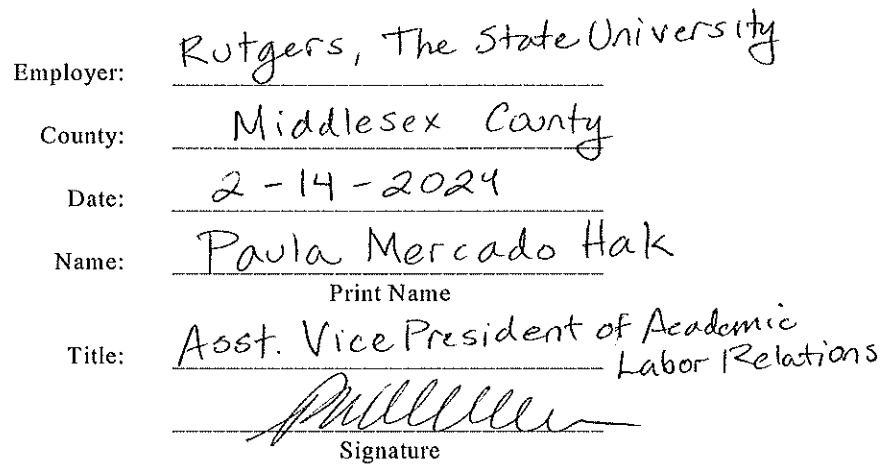 Employer: Rutgers, The State University
County: Middlesex County
Date: 2-14-2024
Name: Paula Mercado Hak
Print Name
Title: Asst. Vice President of Academic
Labor Relations
Signature